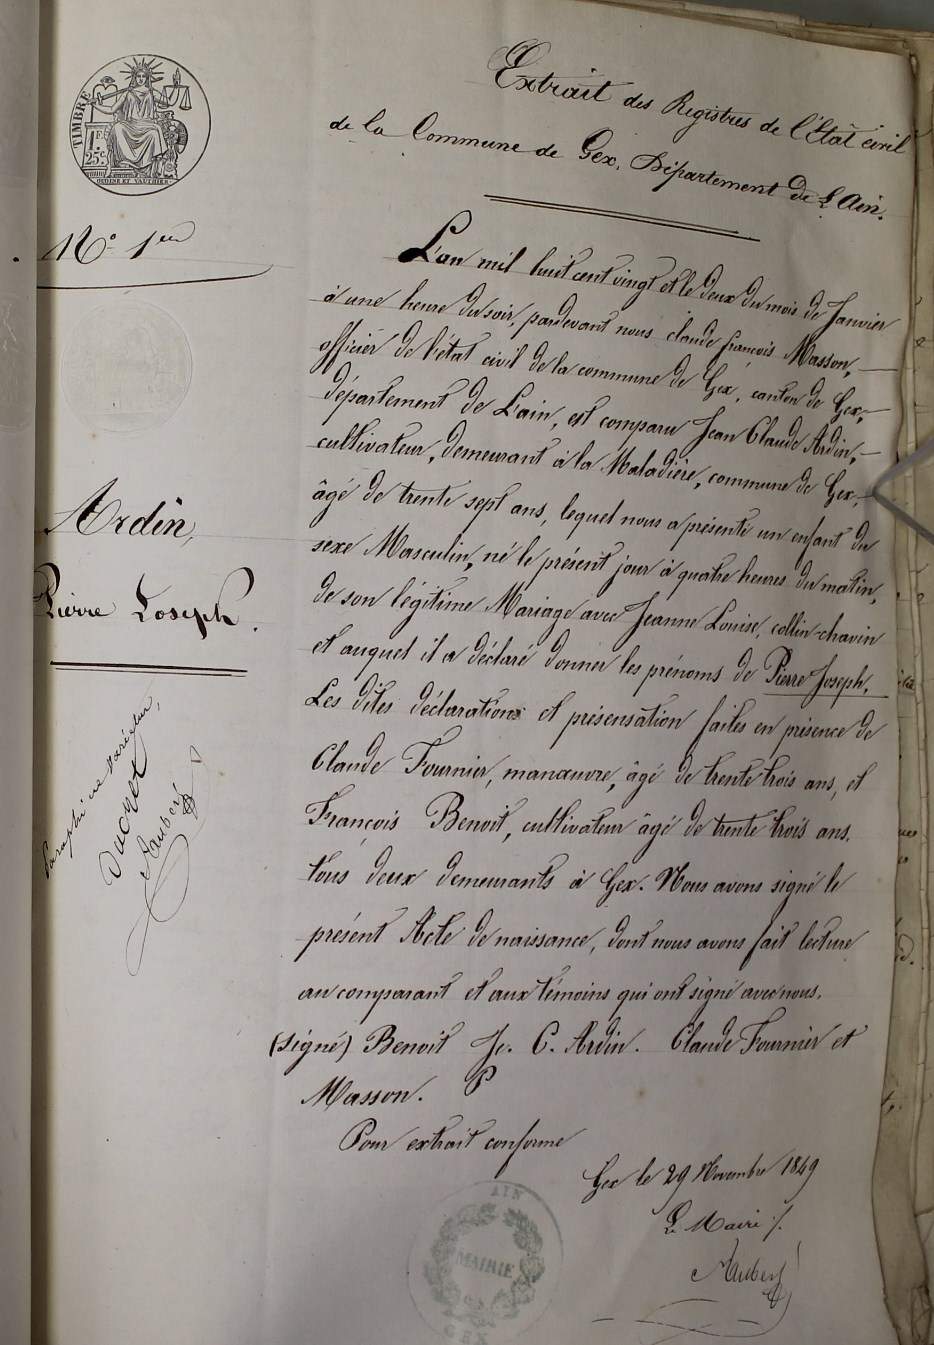 Extrait des Registres de l'Etat civil
de la Commune de Gex, Département de L'Ain.
TIMBRE
1F.
25c.
N° 1er
L'an mil huit cent vingt et le deux du mois de Janvier
à une heure du soir, pardevant nous claude françois Masson,
officier de l'état civil de la commune de Gex, canton de Gex,
département de L'ain, est comparu Jean Claude Ardin,
cultivateur, demeurant à la Maladière, commune de Gex,
âgé de trente sept ans, lequel nous a présenté un enfant du
sexe Masculin, né le présent jour à quatre heures du matin,
de son légitime Mariage avec Jeanne Louise, collin-chavin
et auquel il a déclaré donner les prénoms de Pierre Joseph.
Les dites déclarations et présensation faites en présence de
Claude Fournier, manœuvre, âgé de trente trois ans, et
François Benoit, cultivateur âgé de trente trois ans,
tous deux demeurants à Gex. Nous avons signé le
présent Acte de naissance, dont nous avons fait lecture
au comparant et aux témoins qui ont signé avec nous.
(signé) Benoit J. C. Ardin. Claude Fournier et
Masson.
Pour extrait conforme
Gex le 29 Novembre 1849
Le Maire
Ardin,
Pierre Joseph.
Paraphé ne varietur,
AIN
MAIRIE
GEX